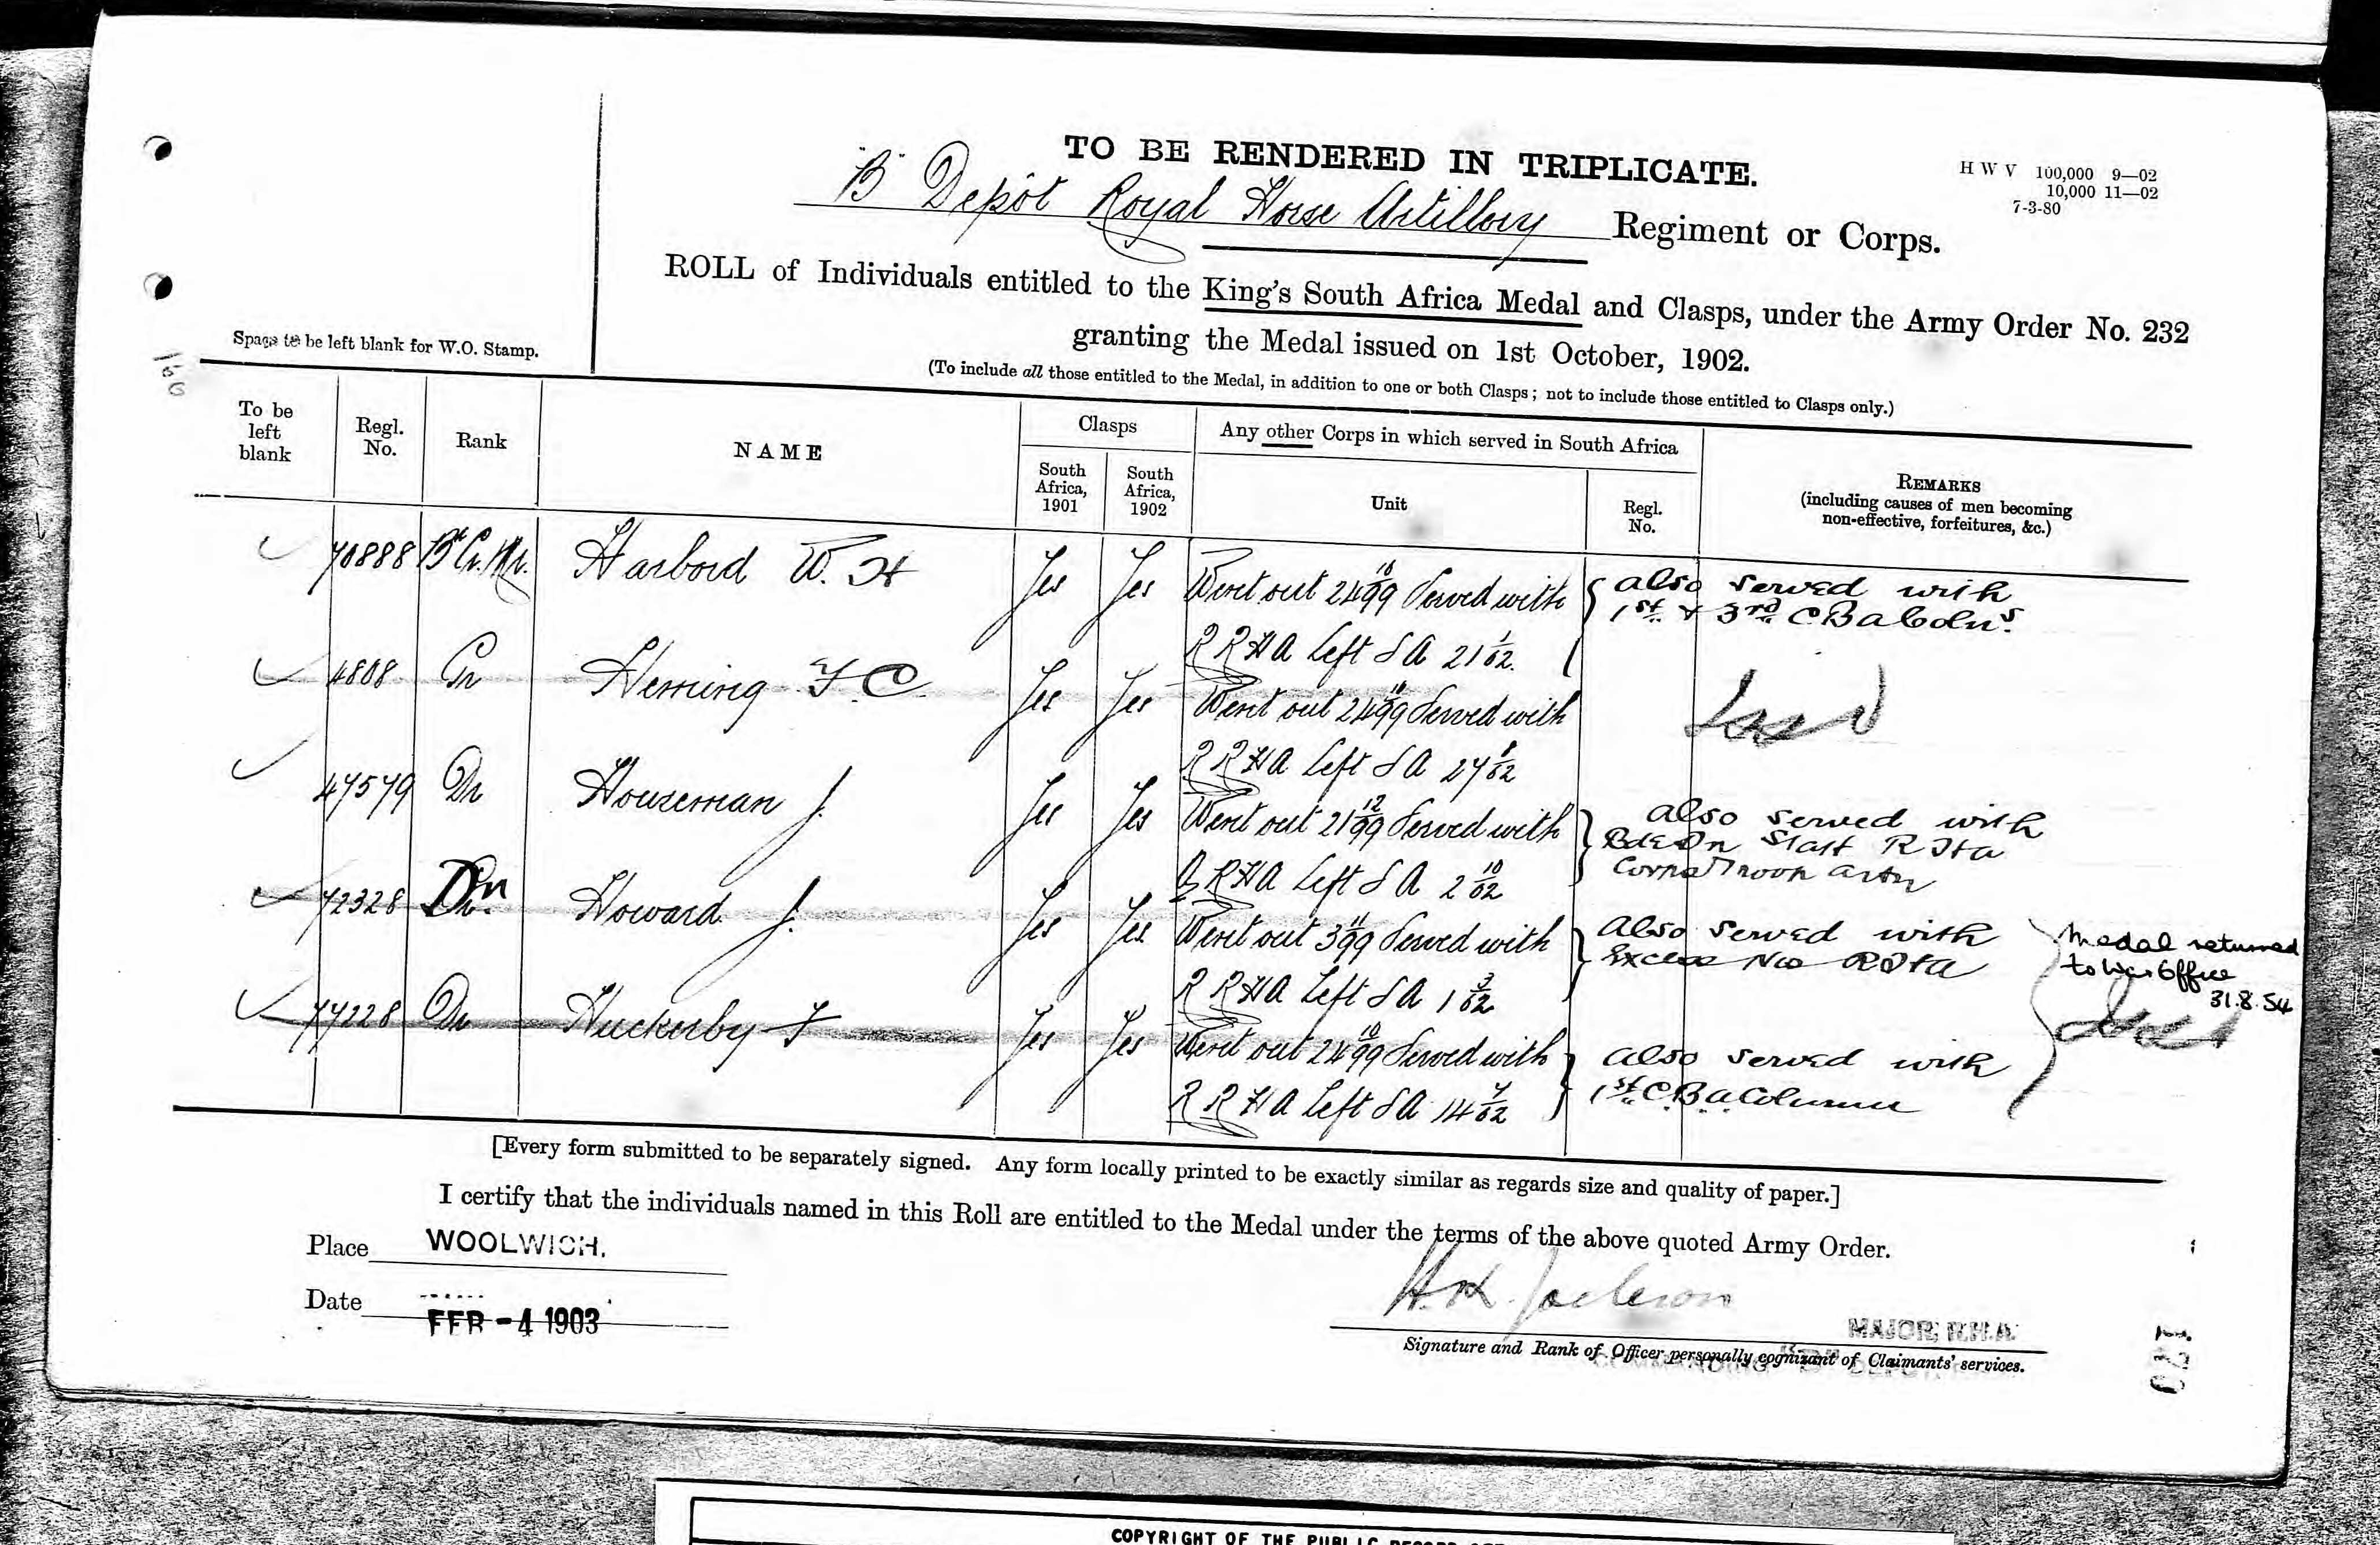 TO BE RENDERED IN TRIPLICATE.
H W V 100,000 9—02
10,000 11—02
7-3-80
"B" Depôt Royal Horse Artillery Regiment or Corps.
ROLL of Individuals entitled to the King's South Africa Medal and Clasps, under the Army Order No. 232
granting the Medal issued on 1st October, 1902.
(To include all those entitled to the Medal, in addition to one or both Clasps; not to include those entitled to Clasps only.)
Space to be left blank for W.O. Stamp.
To be left blank
Regl. No.
Rank
NAME
Clasps
South Africa, 1901
South Africa, 1902
Any other Corps in which served in South Africa
Unit
Regl. No.
REMARKS
(including causes of men becoming
non-effective, forfeitures, &c.)
70888 Harbord W. H Yes Yes Went out 24 10/99 Served with also served with
R RHA Left SA 21 1/02. 1st & 3rd C B a Colns.
4808 Gr Herring F C. Yes Yes Went out 24 10/99 Served with
R RHA Left SA 27 8/02
47579 Dr Houseman J. Yes Yes Went out 21 12/99 Served with also served with
Q RHA Left SA 2 10/02 Staff R H a
72328 Dr Howard J. Yes Yes Went out 3 11/99 Served with also served with
R RHA Left SA 1 3/02 Excess Nos R H a
Medal returned
to War Office
31.8.54
77228 Dr Huckerby F Yes Yes Went out 24 10/99 Served with also served with
R RHA Left SA 14 7/02 1st C B a Column
[Every form submitted to be separately signed. Any form locally printed to be exactly similar as regards size and quality of paper.]
I certify that the individuals named in this Roll are entitled to the Medal under the terms of the above quoted Army Order.
Place WOOLWICH.
Date FEB -4 1903
H.K. Jackson
MAJOR, R.H.A.
Signature and Rank of Officer personally cognizant of Claimants' services.
COPYRIGHT OF THE PUBLIC RECORD